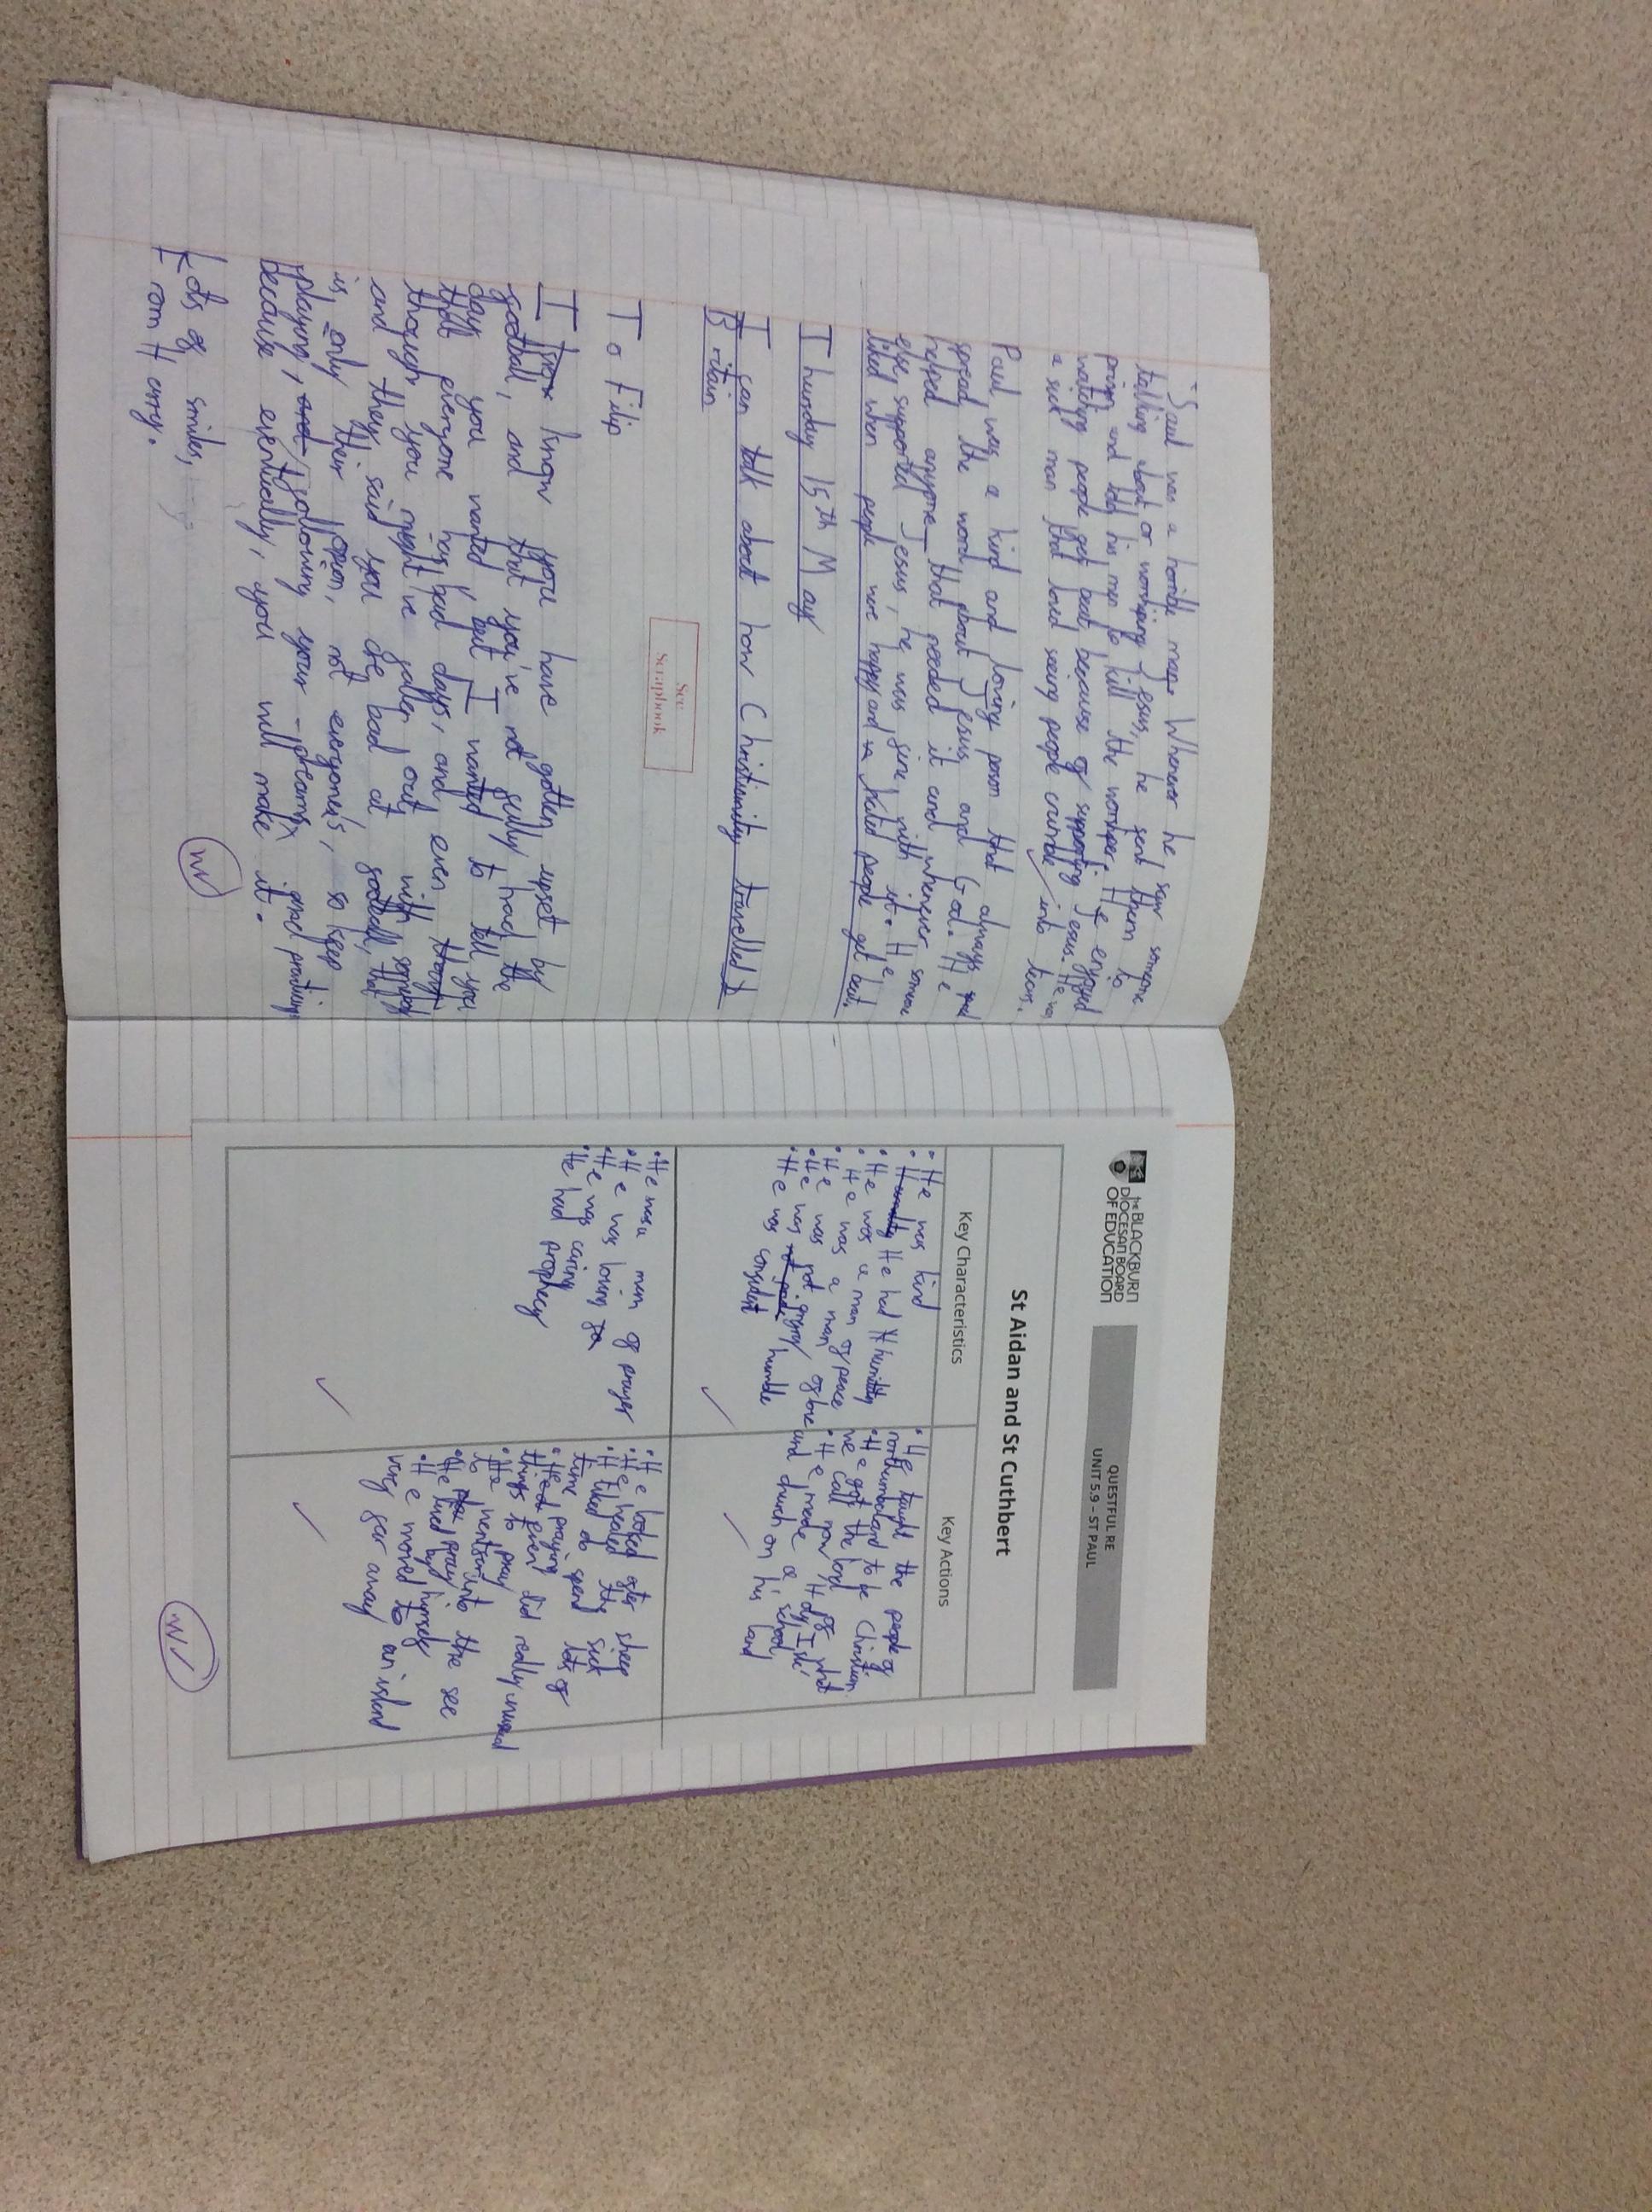 Saul was a horrible man. Whenever he saw someone
talking about or worshiping Jesus, he sent them to
prison and told his men to kill the worshiper. He enjoyed
watching people get beat because of supporting Jesus. He was
a sick man that loved seeing people crumble into tears.
Paul was a kind and loving person that always
spread the word about Jesus and God. He
helped anyone that needed it and whenever someone
else supported Jesus, he was fine with it. He
liked when people were happy and hated people get beat.
Thursday 15th May
I can talk about how Christianity travelled to
Britain
See
Scrapbook
To Filip
I know you have gotten upset by
football, and that you've not fully had the
days you wanted, but I wanted to tell you
that everyone has bad days, and even
though you might've fallen out with somebody
and they said you are bad at football, that
is only their opion, not everyone's, so keep
playing, following your dreams, and practising
because eventually, you will make it.
Lots of smiles,
From Henry.
THE BLACKBURN
DIOCESAN BOARD
OF EDUCATION
QUESTFUL RE
UNIT 5.9 – ST PAUL
St Aidan and St Cuthbert
Key Characteristics
Key Actions
• He was kind
• Humility He had Humility
• He was a man of peace
• He was a man of love
• He was not angry
• He was humble
• He was consistent
• He taught the people of
northumbaland to be Christian
• He got the land of what
we call now 'Holy Isle'
• He made a school
and church on his land
• He was a man of prayer
• He was loving
• He was caring
• He had prophecy
• He looked after sheep
• He healed the sick
• He liked to spend lots of
time praying
• He even did really unusual
things to pray
• He went into the see
to pray
• He lived by himself
• He moved to an island
very far away